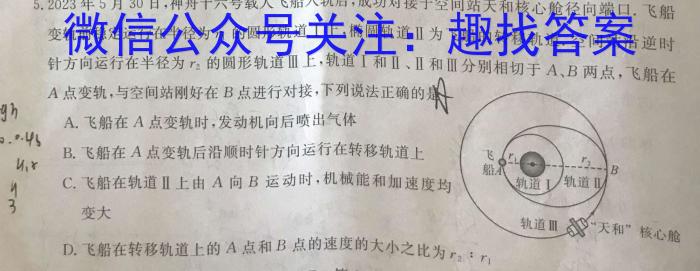 5.2023年5月30日,神舟十六号载人飞船入轨后,成功对接于空间站天和核心舱径向端口.飞船
微信公众号关注:趣找答案
方向运行在半径为r₂的圆形轨道Ⅲ上,轨道Ⅰ和Ⅱ、Ⅱ和Ⅲ分别相切于A、B两点,飞船在
A点变轨,与空间站刚好在B点进行对接,下列说法正确的是
A
A.飞船在A点变轨时,发动机向后喷出气体
B.飞船在A点变轨后沿顺时针方向运行在转移轨道上
C.飞船在轨道Ⅱ上由A向B运动时,机械能和加速度均
变大
D.飞船在转移轨道上的A点和B点的速度的大小之比为r₂:r₁
飞
船A
r₁
r₂
B
轨道Ⅰ
轨道Ⅱ
轨道Ⅲ
"天和"核心舱